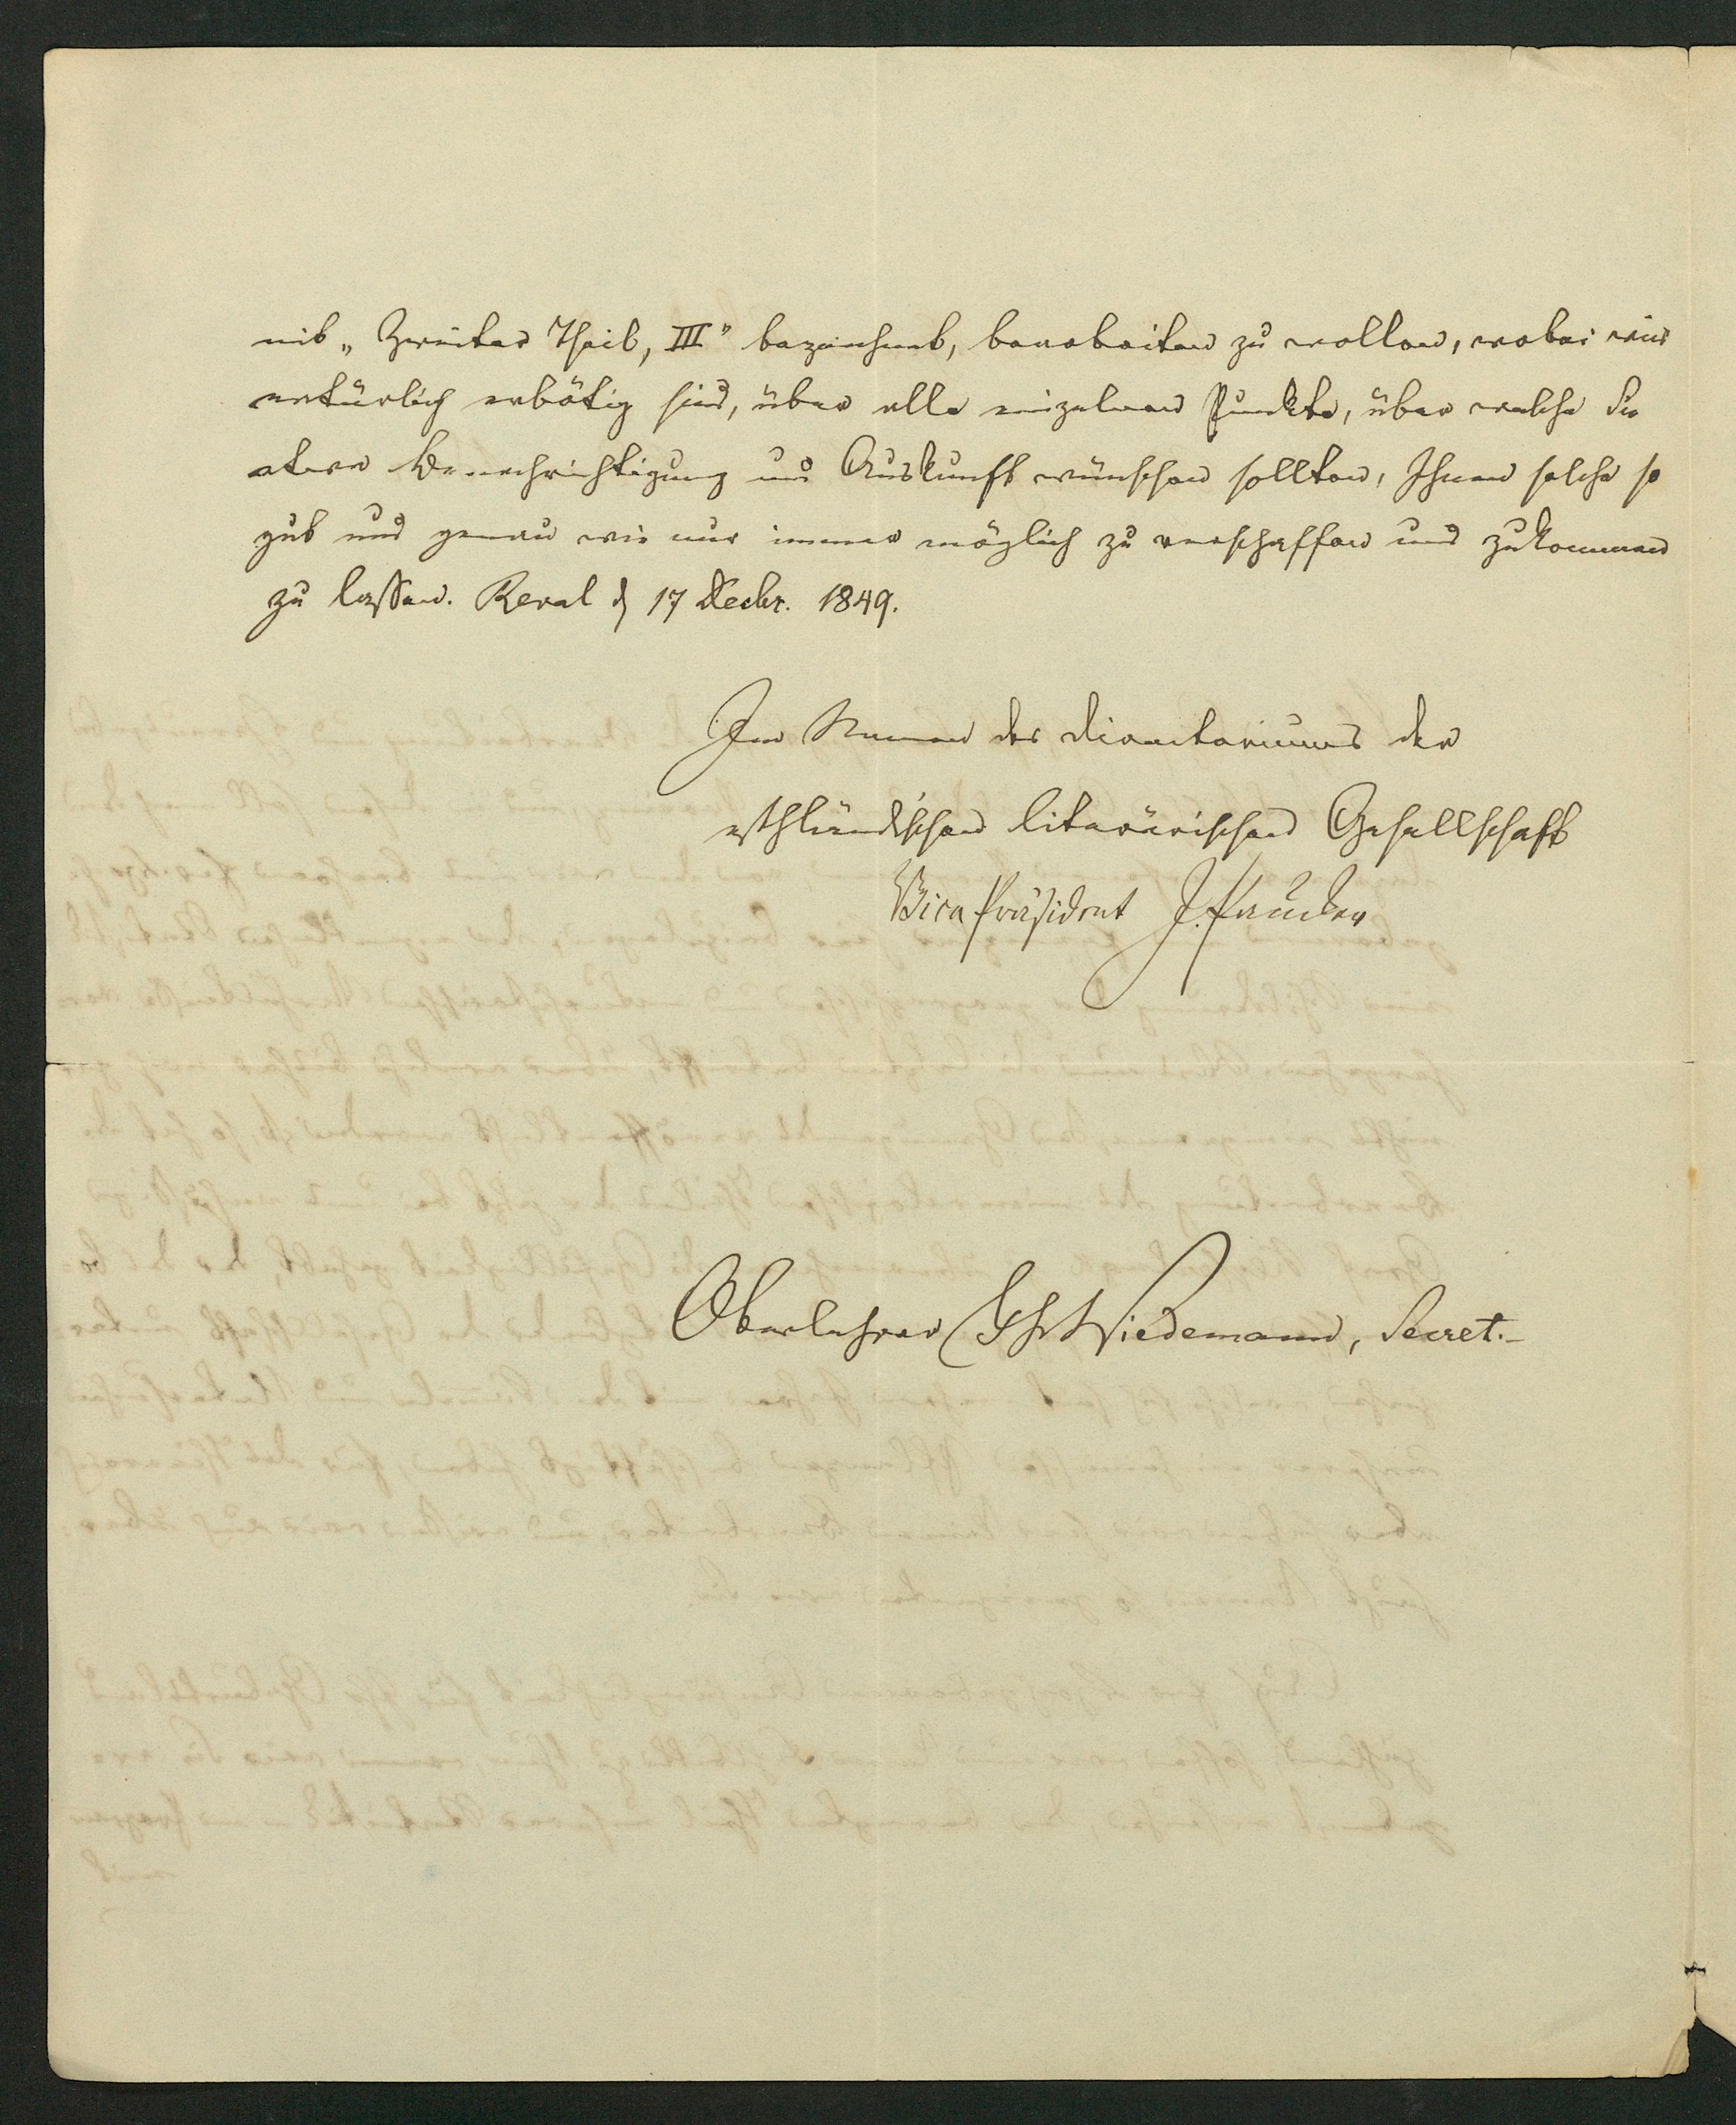 mit „Zweiter Theil, III" bezeichnet, bearbeiten zu wollen, wobei wir
natürlich erbötig sind, über alle einzelnen Punkte, über welche Sie
etwa Benachrichtigung und Auskunft wünschen sollten, Ihnen solche so
gut und genau wie nur immer möglich zu verschaffen und zukommen
zu lassen. Reval d 17 Decbr. 1849.
Im Namen des Directoriums der
esthländischen literärischen Gesellschaft
Vice Präsident J. Paucker
Oberlehrer Wiedemann, Secret.